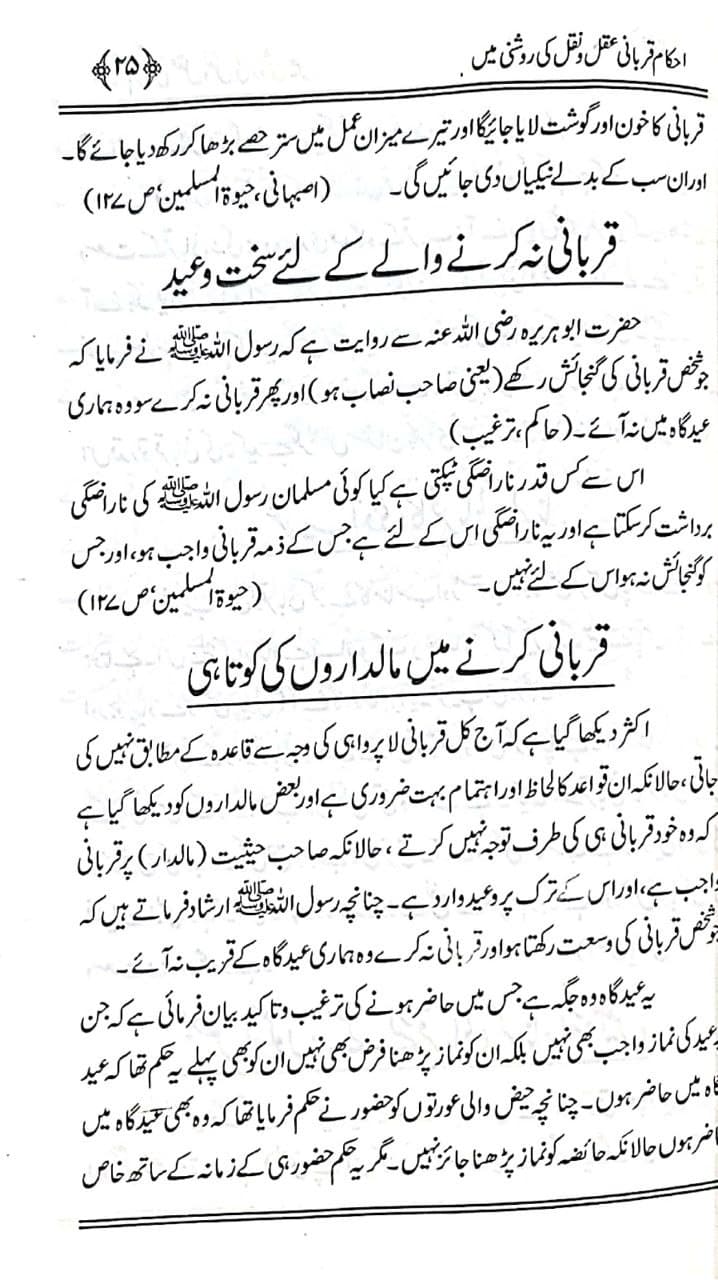 احکام قربانی عقل و نقل کی روشنی میں ﴿۲۵﴾
قربانی کا خون اور گوشت لایا جائیگا اور تیرے میزان عمل میں ستر حصے بڑھا کر رکھ دیا جائے گا۔
اور ان سب کے بدلے نیکیاں دی جائیں گی۔ (اصبہانی، حیوۃ المسلمین، ص ۱۲۷)
قربانی نہ کرنے والے کے لئے سخت وعید
حضرت ابو ہریرہ رضی اللہ عنہ سے روایت ہے کہ رسول اللہ ﷺ نے فرمایا کہ
جو شخص قربانی کی گنجائش رکھے (یعنی صاحب نصاب ہو) اور پھر قربانی نہ کرے سو وہ ہماری
عیدگاہ میں نہ آئے۔ (حاکم، ترغیب)
اس سے کس قدر ناراضگی ٹپکتی ہے کیا کوئی مسلمان رسول اللہ ﷺ کی ناراضگی
برداشت کر سکتا ہے اور یہ ناراضگی اس کے لئے ہے جس کے ذمہ قربانی واجب ہو، اور جس
کو گنجائش نہ ہو اس کے لئے نہیں۔ (حیوۃ المسلمین، ص ۱۲۷)
قربانی کرنے میں مالداروں کی کوتاہی
اکثر دیکھا گیا ہے کہ آج کل قربانی لا پرواہی کی وجہ سے قاعدہ کے مطابق نہیں کی
جاتی، حالانکہ ان قواعد کا لحاظ اور اہتمام بہت ضروری ہے اور بعض مالداروں کو دیکھا گیا ہے
کہ وہ خود قربانی ہی کی طرف توجہ نہیں کرتے، حالانکہ صاحب حیثیت (مالدار) پر قربانی
واجب ہے، اور اس کے ترک پر وعید وارد ہے۔ چنانچہ رسول اللہ ﷺ ارشاد فرماتے ہیں کہ
جو شخص قربانی کی وسعت رکھتا ہو اور قربانی نہ کرے وہ ہماری عیدگاہ کے قریب نہ آئے۔
یہ عیدگاہ وہ جگہ ہے جس میں حاضر ہونے کی ترغیب و تاکید بیان فرمائی ہے کہ جن
پر عید کی نماز واجب بھی نہیں بلکہ ان کو نماز پڑھنا فرض بھی نہیں ان کو بھی پہلے یہ حکم تھا کہ عید
گاہ میں حاضر ہوں۔ چنانچہ حیض والی عورتوں کو حضور نے حکم فرمایا تھا کہ وہ بھی عیدگاہ میں
حاضر ہوں حالانکہ حائضہ کو نماز پڑھنا جائز نہیں۔ مگر یہ حکم حضور ہی کے زمانہ کے ساتھ خاص